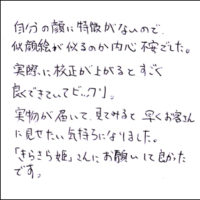 自分の顔に特徴がないので、
似顔絵が似るのか内心不安でした。
実際に校正が上がるとすごく
良くできていてビックリ。
実物が届いて、見てみると早くお客さん
に見せたい気持ちになりました。
「きらさら姫」さんにお願いして良かった
です。